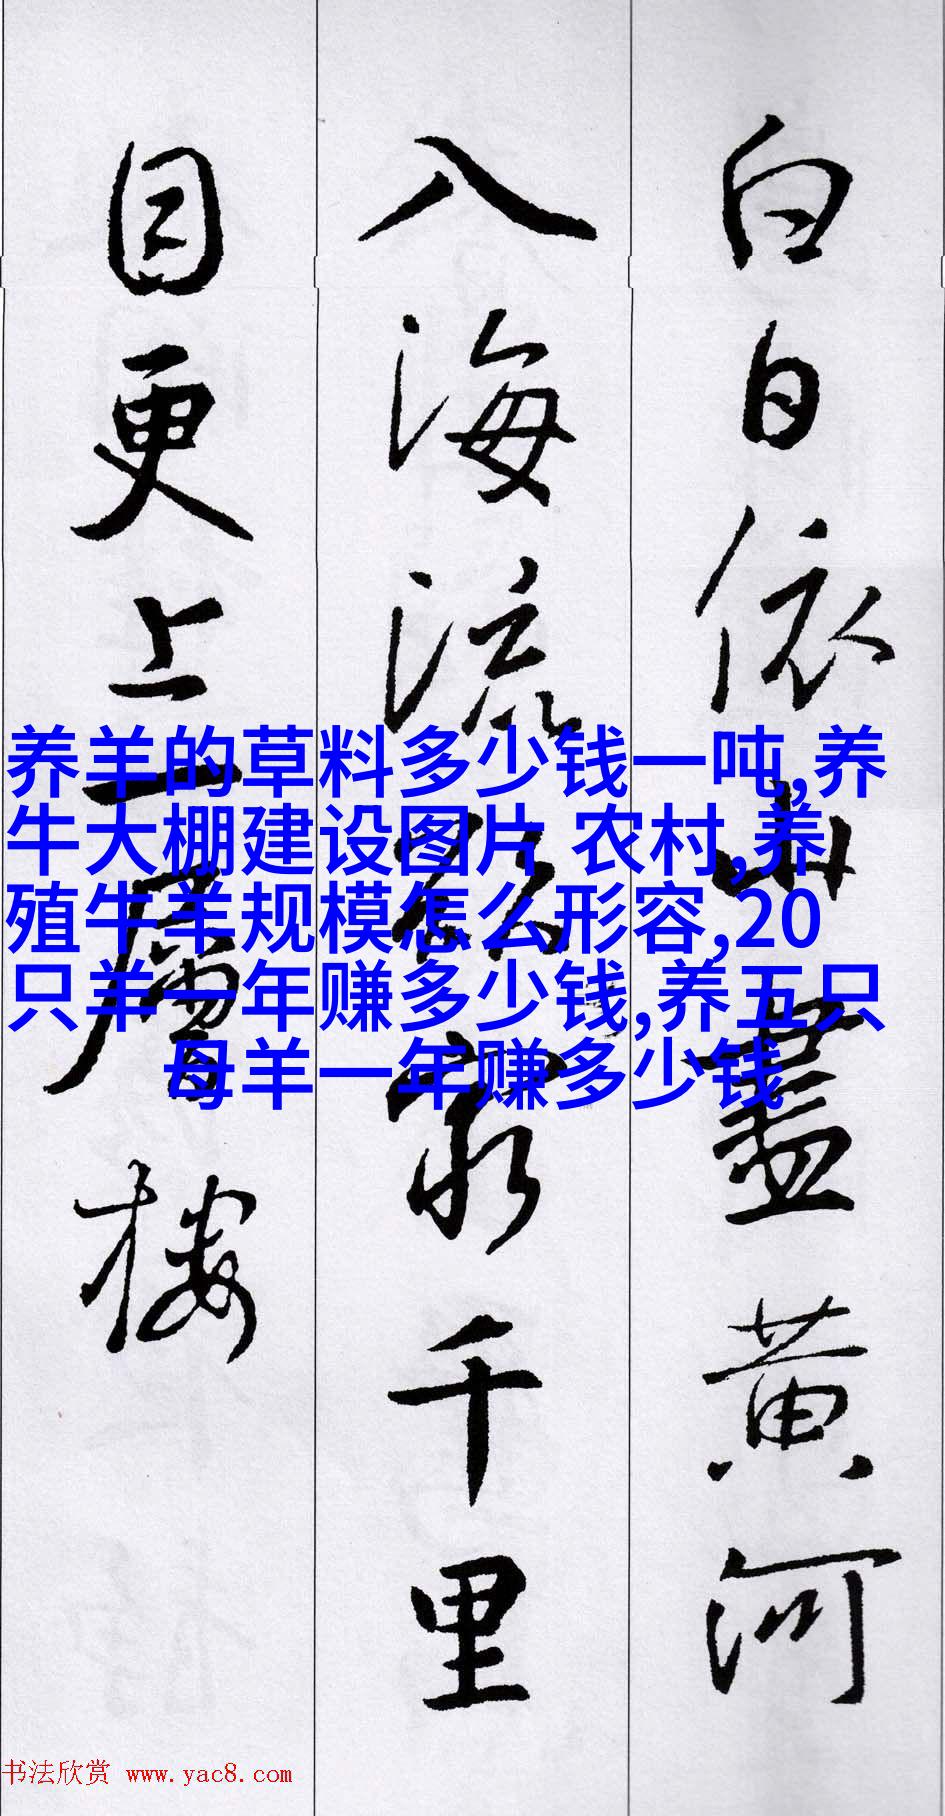 白日依山盡黄河
入海流欲窮千里
目更上一層樓
养羊的草料多少钱一吨,养
牛大棚建设图片 农村,养
殖牛羊规模怎么形容,20
只羊一年赚多少钱,养五只
母羊一年赚多少钱
书法欣赏 www.yac8.com